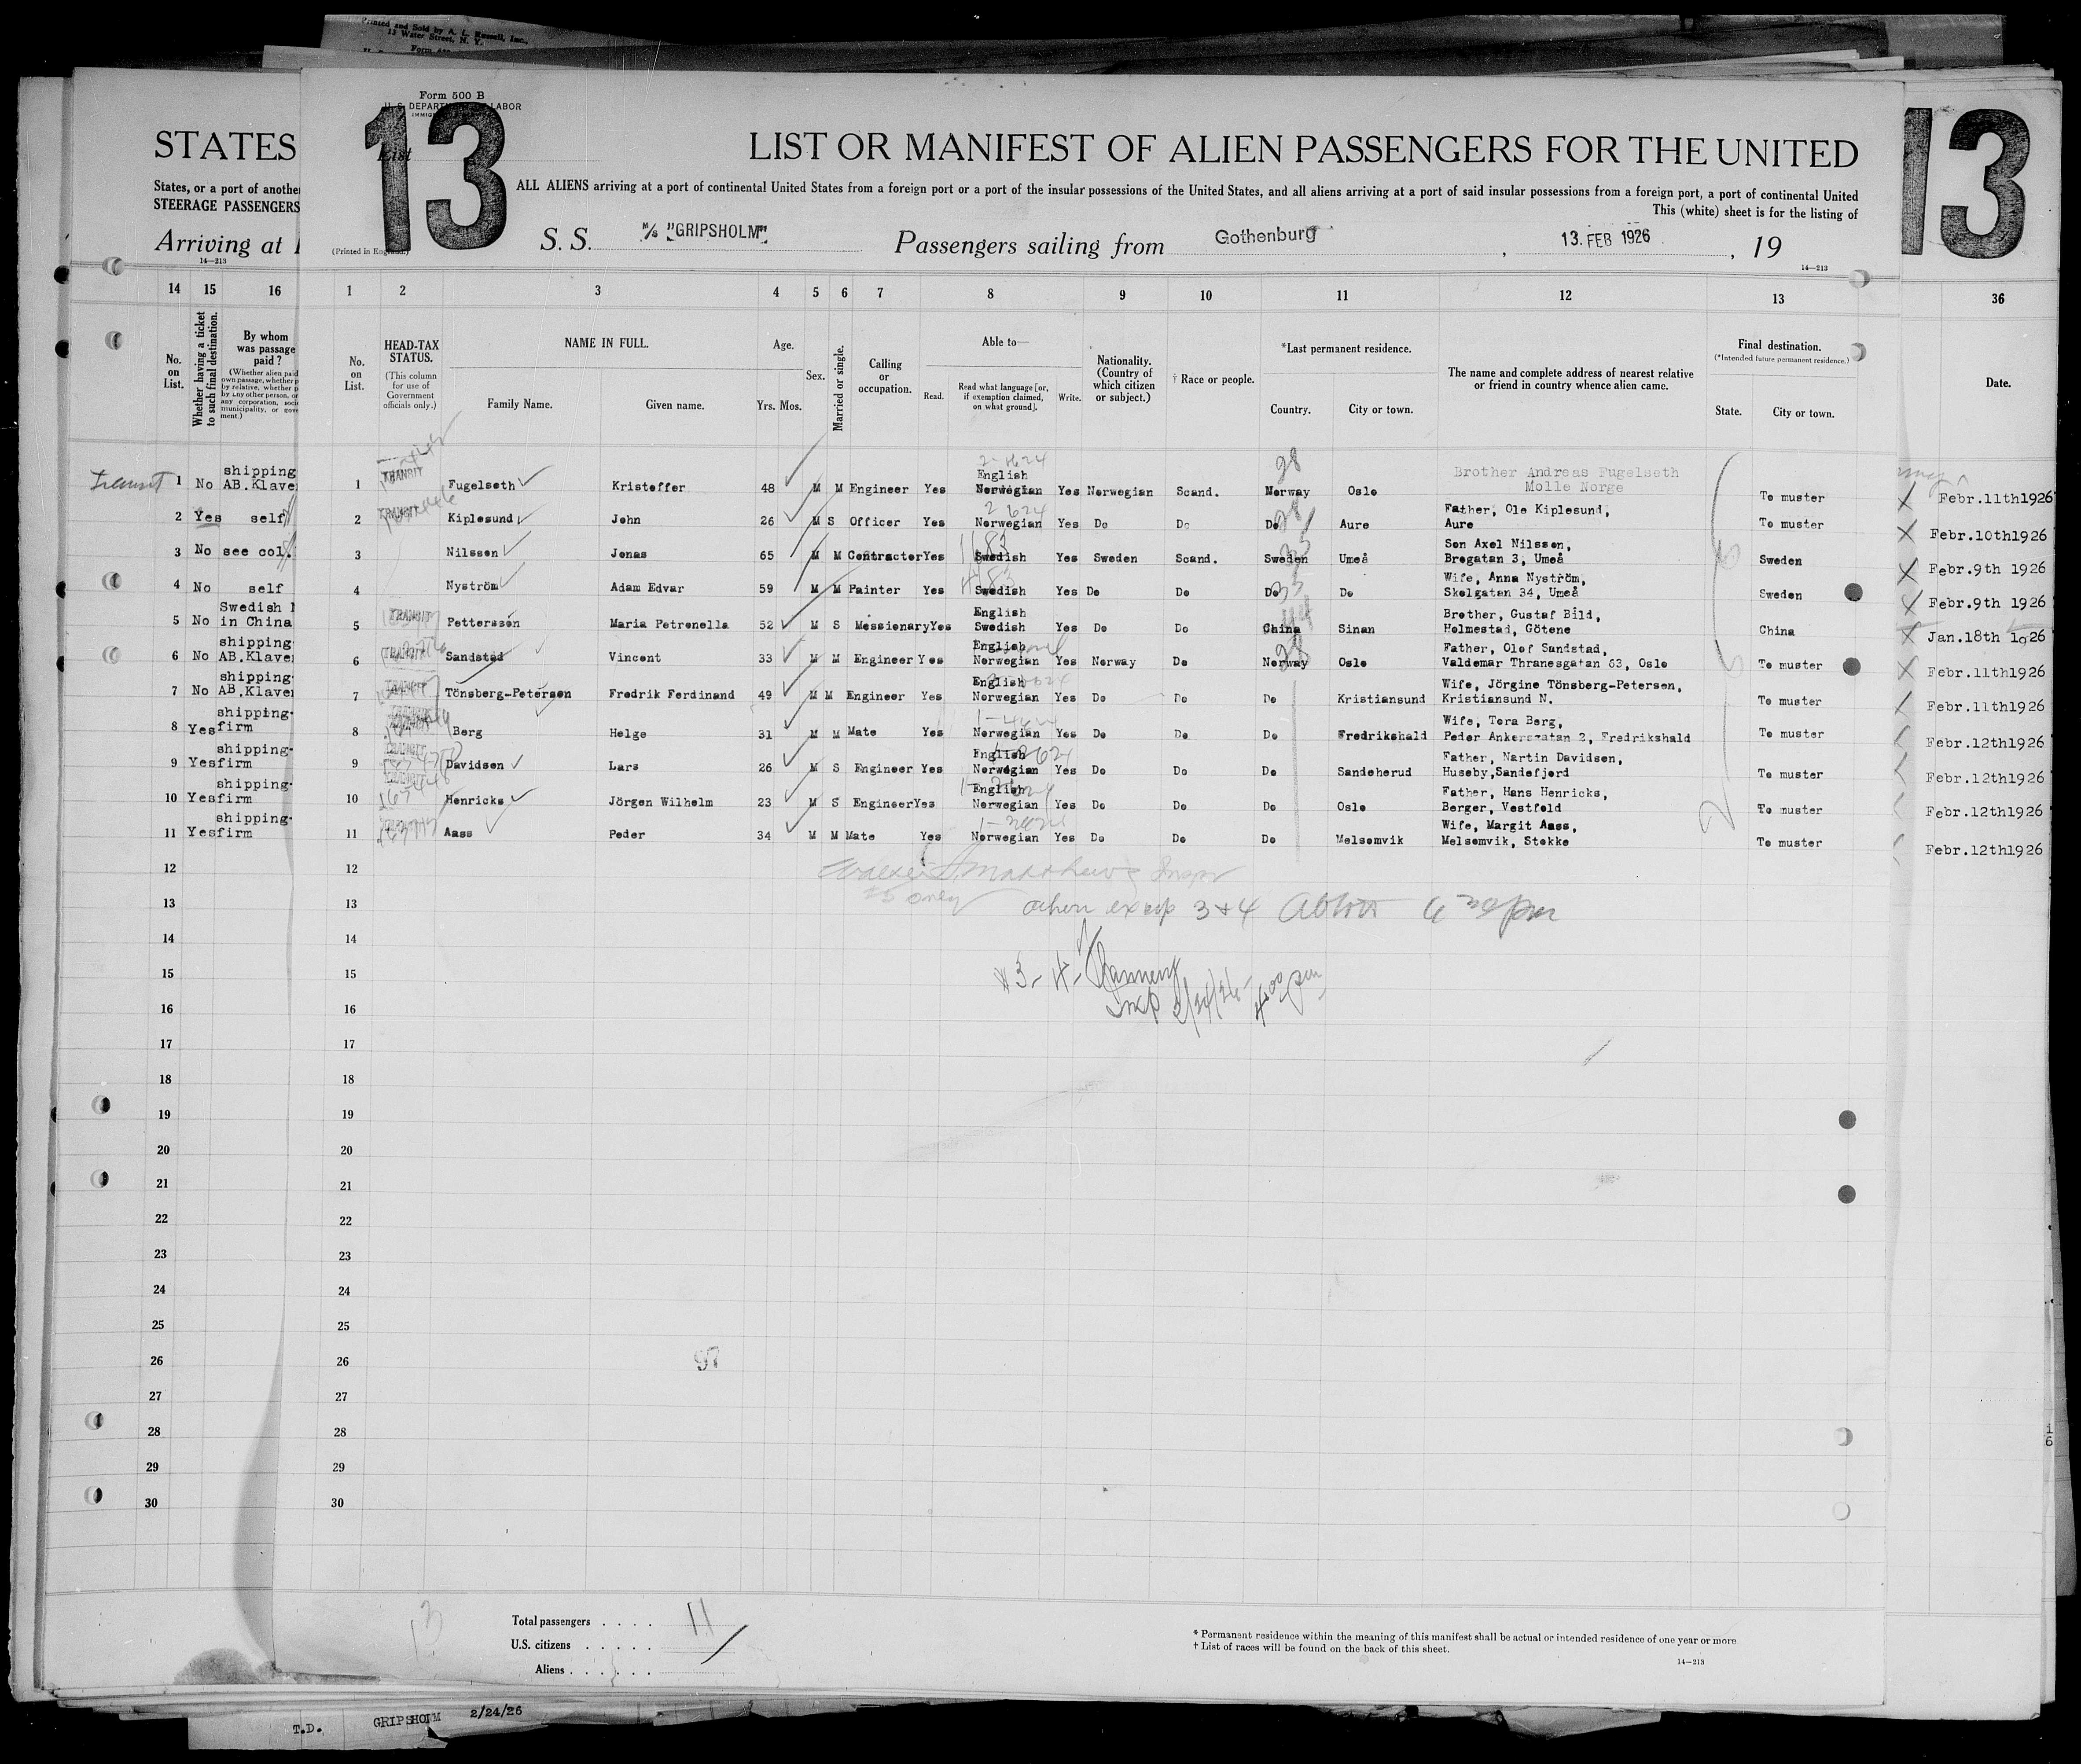 Printed and Sold by A. L. Russell, Inc.,
13 Water Street, N. Y.
Form 500 B
U. S. DEPARTMENT OF LABOR
13
List
13
STATES
LIST OR MANIFEST OF ALIEN PASSENGERS FOR THE UNITED
States, or a port of anothe
STEERAGE PASSENGERS
ALL ALIENS arriving at a port of continental United States from a foreign port or a port of the insular possessions of the United States, and all aliens arriving at a port of said insular possessions from a foreign port, a port of continental United
This (white) sheet is for the listing of
Arriving at
14—213
(Printed in England.)
S. S. M/S "GRIPSHOLM" Passengers sailing from Gothenburg, 13. FEB 1926, 19
14—213
14 15 16 1 2 3 4 5 6 7 8 9 10 11 12 13 36
No. on List.
Whether having a ticket to such final destination.
By whom was passage paid?
(Whether alien paid own passage, whether by relative, whether by any other person, or any corporation, municipality, or ment.)
No. on List.
HEAD-TAX STATUS.
(This column for use of Government officials only.)
NAME IN FULL.
Family Name. Given name.
Age.
Yrs. Mos.
Sex.
Married or single.
Calling or occupation.
Able to—
Read. Read what language [or, if exemption claimed, on what ground]. Write.
Nationality. (Country of which citizen or subject.)
† Race or people.
*Last permanent residence.
Country. City or town.
The name and complete address of nearest relative or friend in country whence alien came.
Final destination.
(*Intended future permanent residence.)
State. City or town.
Date.
Transit 1 No shipping AB.Klave 1 TRANSIT Fugelseth Kristoffer 48 M M Engineer Yes English Norwegian Yes Norwegian Scand. Norway Oslo Brother Andreas Fugelseth Molle Norge To muster Febr.11th1926
2 Yes self 2 TRANSIT Kiplesund John 26 M S Officer Yes Norwegian Yes Do Do Do Aure Father, Ole Kiplesund, Aure To muster Febr.10th1926
3 No see col. 3 Nilsson Jonas 65 M M Contractor Yes Swedish Yes Sweden Scand. Sweden Umeå Son Axel Nilsson, Bregatan 3, Umeå Sweden Febr.9th 1926
4 No self 4 Nyström Adam Edvar 59 M M Painter Yes Swedish Yes Do Do Do Do Wife, Anna Nyström, Skolgatan 34, Umeå Sweden Febr.9th 1926
5 No Swedish in China 5 TRANSIT Petterssén Maria Petronella 52 M S Messionary Yes English Swedish Yes Do Do China Sinan Brother, Gustaf Bild, Holmestad, Götene China Jan.18th 1926
6 No shipping AB.Klave 6 TRANSIT Sandstad Vincent 33 M M Engineer Yes English Norwegian Yes Norway Do Norway Oslo Father, Olof Sandstad, Valdemar Thranesgatan 63, Oslo To muster Febr.11th1926
7 No shipping AB.Klave 7 TRANSIT Tönsberg-Petersen Fredrik Ferdinand 49 M M Engineer Yes English Norwegian Yes Do Do Do Kristiansund Wife, Jörgine Tönsberg-Petersen, Kristiansund N. To muster Febr.11th1926
8 Yes shipping- firm 8 Berg Helge 31 M M Mate Yes Norwegian Yes Do Do Do Fredrikshald Wife, Tora Berg, Peder Ankersgatan 2, Fredrikshald To muster Febr.12th1926
9 Yes shipping- firm 9 TRANSIT Davidsen Lars 26 M S Engineer Yes English Norwegian Yes Do Do Do Sandeherud Father, Martin Davidsen, Huseby,Sandefjord To muster Febr.12th1926
10 Yes shipping- firm 10 TRANSIT Henricks Jörgen Wilhelm 23 M S Engineer Yes English Norwegian Yes Do Do Do Oslo Father, Hans Henricks, Berger, Vestfold To muster Febr.12th1926
11 Yes shipping- firm 11 Aass Peder 34 M M Mate Yes Norwegian Yes Do Do Do Melsomvik Wife, Margit Aass, Melsomvik, Stokke To muster Febr.12th1926
12 12
13 13 only 3 & 4 6 pm
14 14
15 15 #3-4-
16 16 Insp 2/24/26 4 00 pm
17 17
18 18
19 19
20 20
21 21
22 22
23 23
24 24
25 25
26 26 97
27 27
28 28
29 29
30 30
13
Total passengers . . . . 11
U.S. citizens . . . . .
Aliens . . . . . .
* Permanent residence within the meaning of this manifest shall be actual or intended residence of one year or more
† List of races will be found on the back of this sheet.
14—213
T.D. GRIPSHOLM 2/24/26